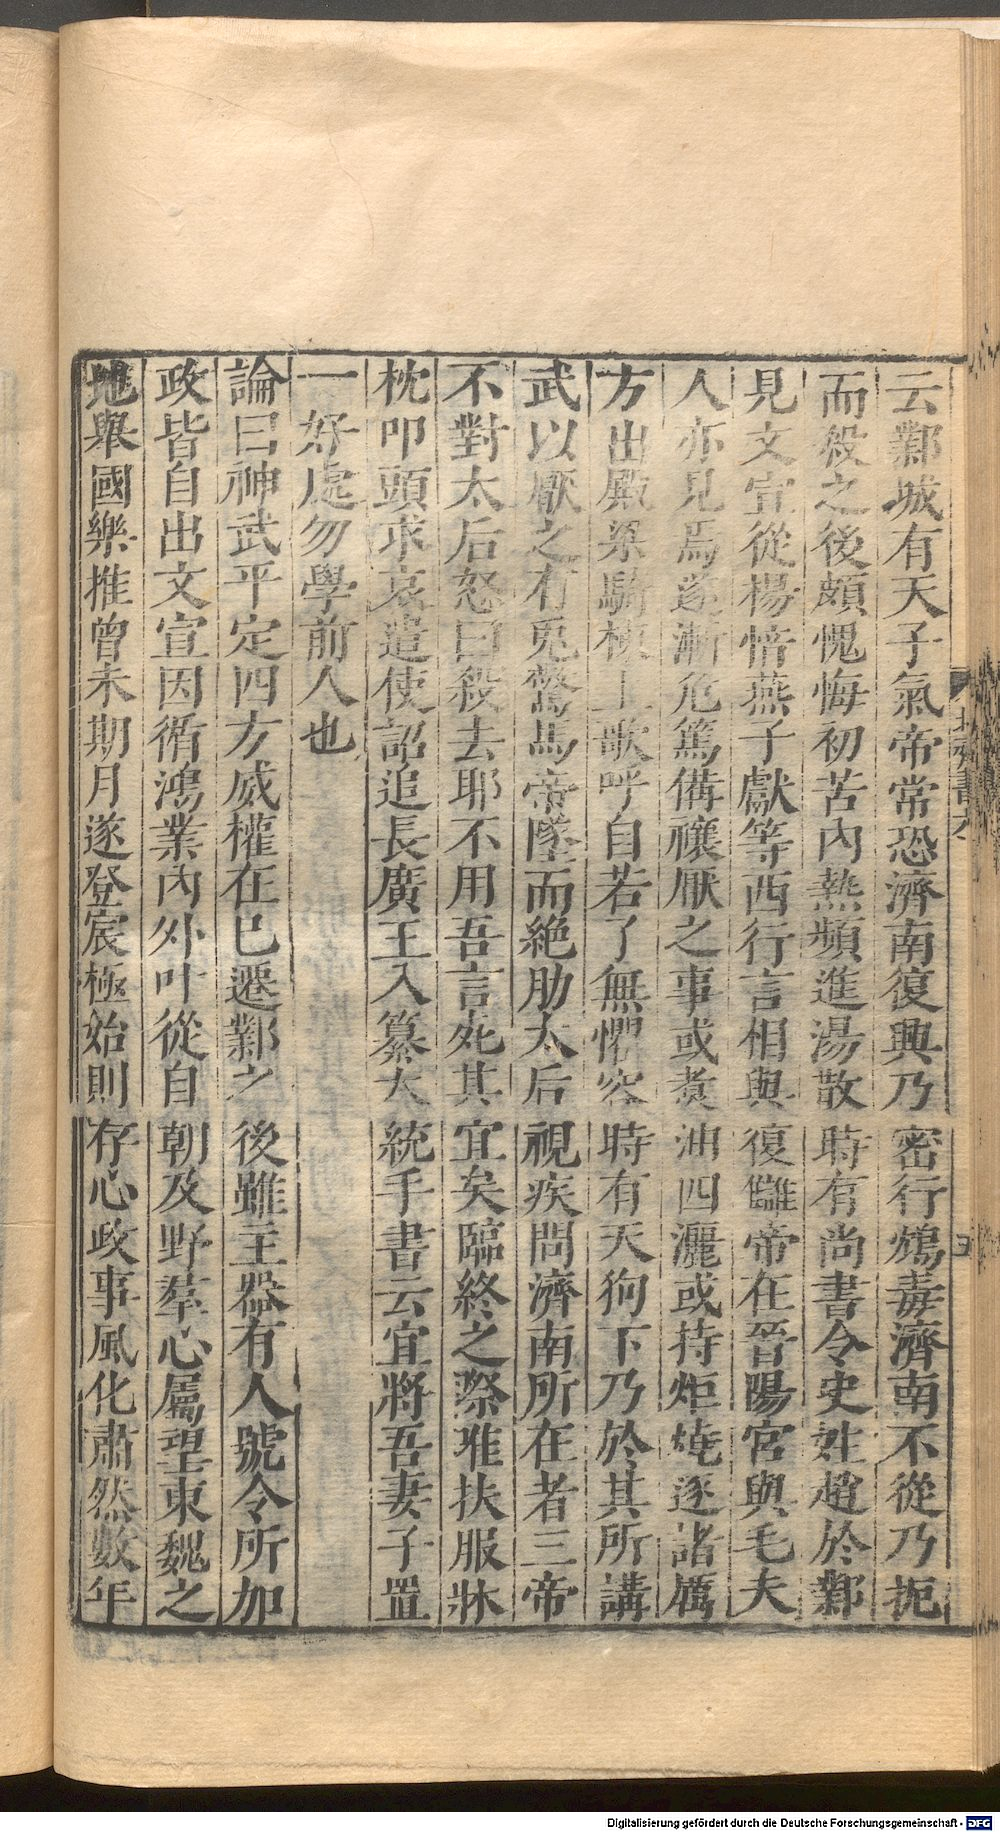 云鄴城有天子氣帝常恐濟南復興乃密行鴆毒濟南不從乃扼
而殺之後頗愧悔初苦內熱頻進湯散時有尚書令史姓趙於鄴
見文宣從楊愔燕子獻等西行言相與復讎帝在晉陽宮與毛夫
人亦見焉遂漸危篤備禳厭之事或煑油四灑或持炬燒逐諸厲
方出殿梁騎棟上歌呼自若了無懼容時有天狗下乃於其所講
武以厭之有兎驚馬帝墜而絶肋太后視疾問濟南所在者三帝
不對太后怒曰殺去耶不用吾言死其宜矣臨終之際唯扶服牀
枕叩頭求哀遣使詔追長廣王入纂大統手書云宜將吾妻子置
一好處勿學前人也
論曰神武平定四方威權在已遷鄴之後雖主器有人號令所加
政皆自出文宣因循鴻業內外叶從自朝及野羣心屬望東魏之
地舉國樂推曾未期月遂登宸極始則存心政事風化肅然數年
Digitalisierung gefördert durch die Deutsche Forschungsgemeinschaft - DFG